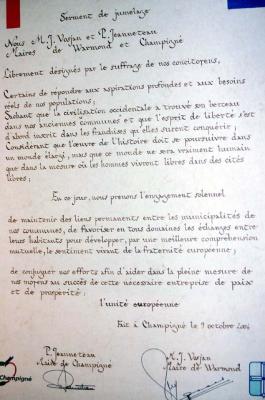 Serment de jumelage
Nous M. J. Vasjan et P. Jeanneteau
Maires de Warmond et Champigné
Librement désignés par le suffrage de nos concitoyens,
Certains de répondre aux aspirations profondes et aux besoins
réels de nos populations;
Sachant que la civilisation occidentale a trouvé son berceau
dans nos anciennes communes et que l'esprit de liberté s'est
d'abord inscrit dans les franchises qu'elles surent conquérir;
Considérant que l'œuvre de l'histoire doit se poursuivre dans
un monde élargi, mais que ce monde ne sera vraiment humain
que dans la mesure où les hommes vivront libres dans des cités
libres;
En ce jour, nous prenons l'engagement solennel
de maintenir des liens permanents entre les municipalités de
nos communes, de favoriser en tous domaines les échanges entre
leurs habitants pour développer, par une meilleure compréhension
mutuelle, le sentiment vivant de la fraternité européenne;
de conjuguer nos efforts afin d'aider dans la pleine mesure de
nos moyens au succès de cette nécessaire entreprise de paix
et de prospérité:
l'unité européenne
Fait à Champigné le 9 octobre 2004
P. Jeanneteau
Maire de Champigné
M. J. Vasjan
Maire de Warmond
Champigné